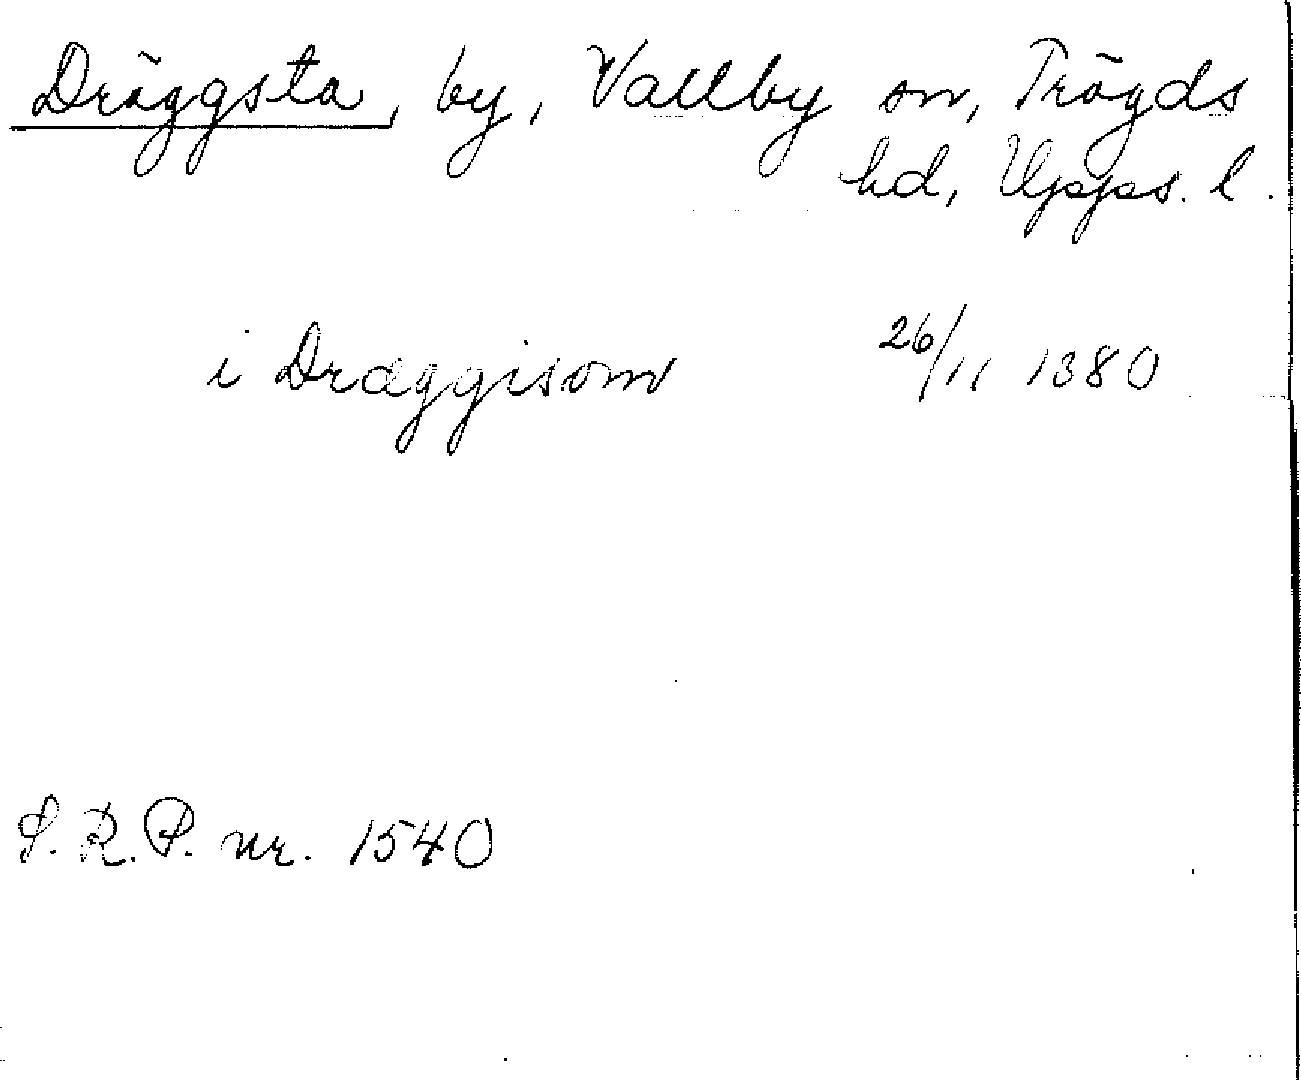 Dräggsta, by, Vallby sn, Trögds
hd, Upps. l.
i Dræggisom 26/11 1380
S.R.P. nr. 1540